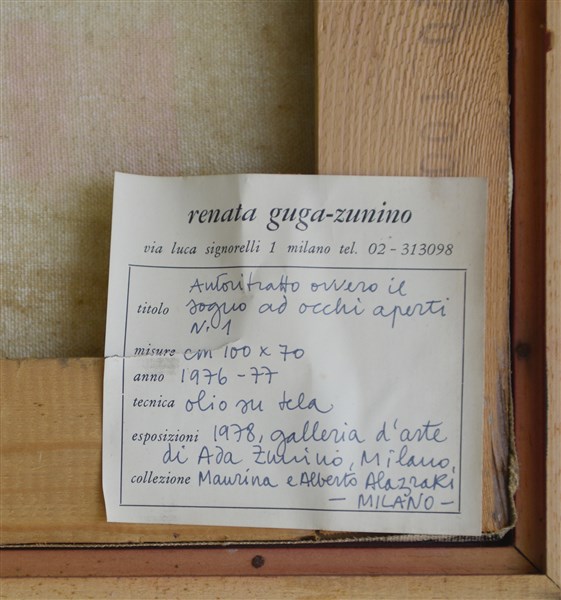 renata guga-zunino
via luca signorelli 1 milano tel. 02-313098
titolo Autoritratto ovvero il
sogno ad occhi aperti
N. 1
misure cm 100 x 70
anno 1976-77
tecnica olio su tela
esposizioni 1978, galleria d'arte
di Ada Zunino, Milano,
collezione Maurina e Alberto Alazraki
- MILANO -